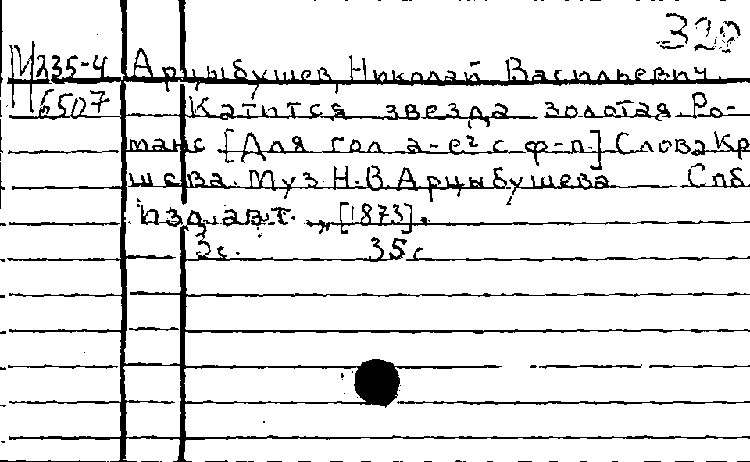 320
М235-4 Арцыбушев, Николай Васильевич.
6507 Катится звезда золотая. Ро-
манс. [Для гол а-е² с ф-п] Слова Кр
шева. Муз Н.В. Арцыбушева. Спб
изд. авт. [1873].
3с. 35с